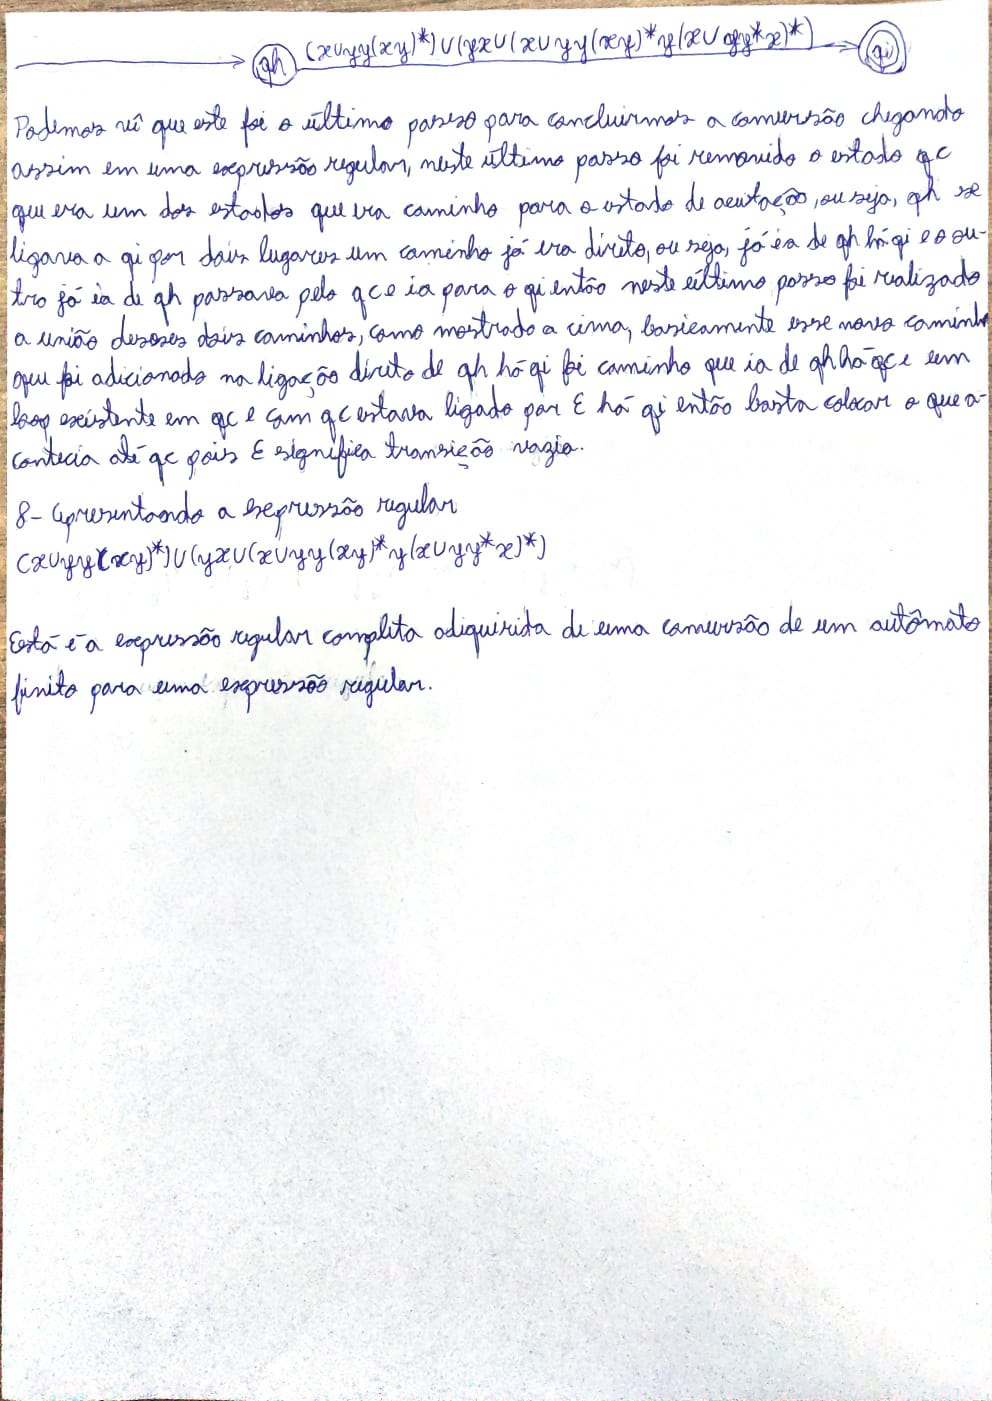 qh (x∪yy(xy)*)∪(yx∪(x∪yy(xy)*y(x∪yy*x)*) qi
Podemos vê que este foi o último passo para concluirmos a conversão chegando
assim em uma expressão regular, neste último passo foi removido o estado qc
que era um dos estados que era caminho para o estado de aceitação, ou seja, qh se
ligava a qi por dois lugares um caminho já era direto, ou seja, já ia de qh há qi e o ou-
tro já ia de qh passava pelo qc e ia para o qi então neste último passo foi realizado
a união desses dois caminhos, como mostrado a cima, basicamente esse novo caminho
que foi adicionado na ligação direto de qh há qi foi caminho que ia de qh há qc e um
loop existente em qc e com qc estava ligado por E há qi então basta colocar o que a-
contecia até qc pois E significa transição vazia.
8- Apresentando a expressão regular
(x∪yy(xy)*)∪(yx∪(x∪yy(xy)*y(x∪yy*x)*)
Está é a expressão regular completa adiquirida de uma conversão de um autômato
finito para uma expressão regular.